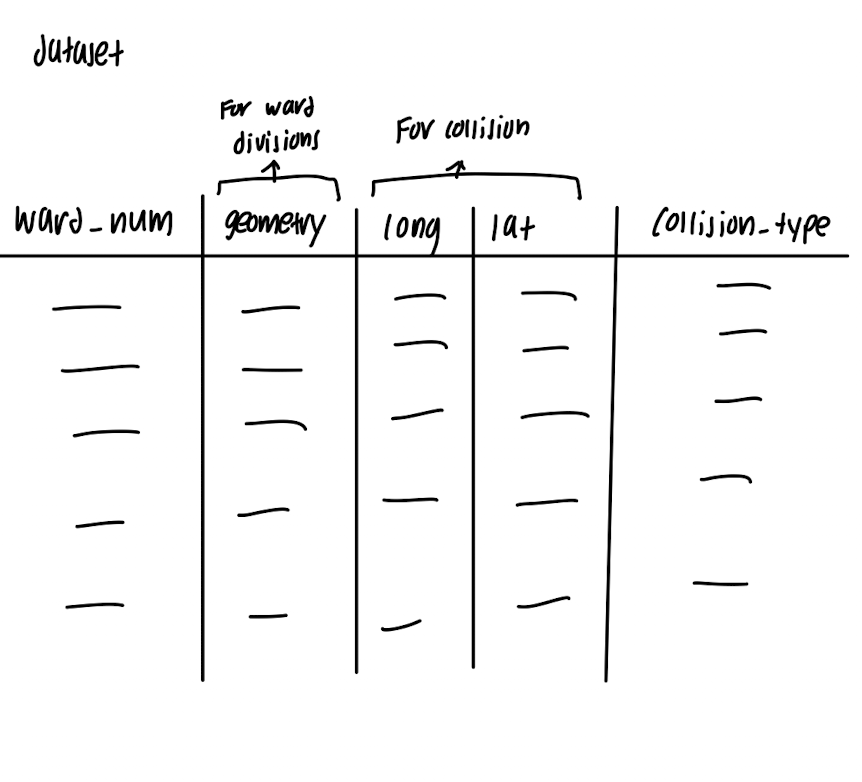 dataset
For ward
divisions
For collision
ward_num geometry long lat collision_type